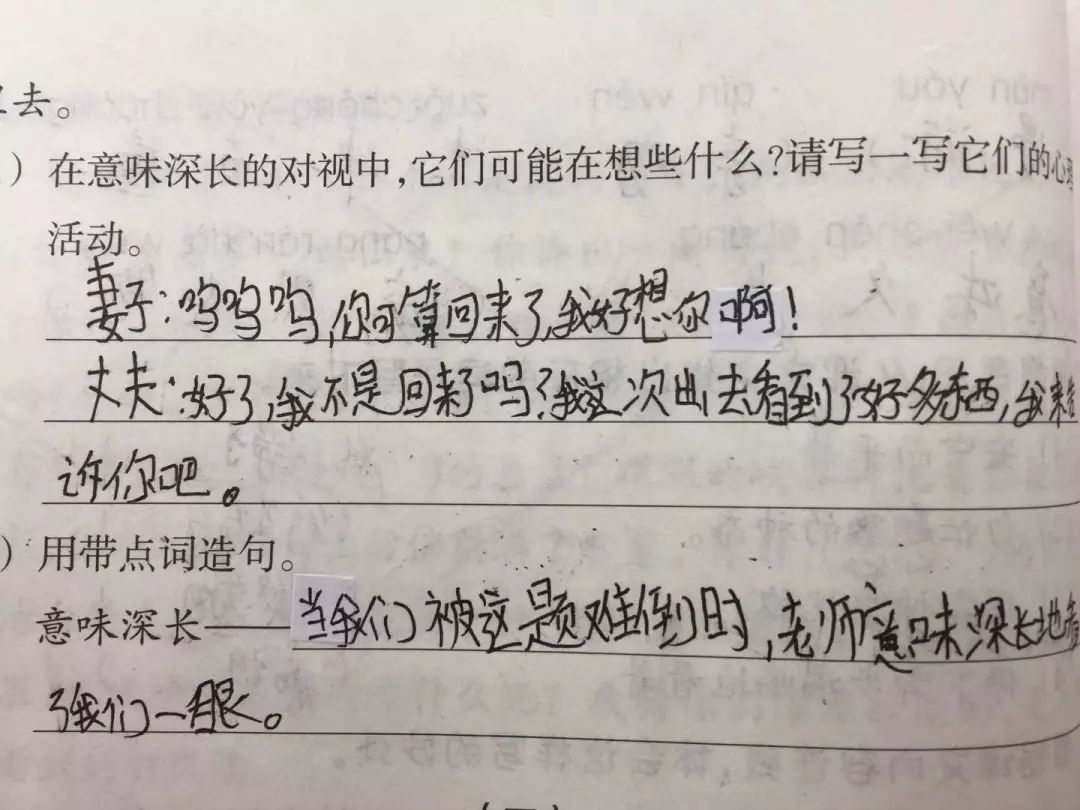 去。
）在意味深长的对视中,它们可能在想些什么?请写一写它们的心理
活动。
妻子:呜呜呜,你可算回来了,我好想你啊!
丈夫:好了,我不是回来了吗?我这次出去看到了好多东西,我来告
诉你吧。
）用带点词造句。
意味深长——当我们被这题难倒时,老师意味深长地看
了我们一眼。